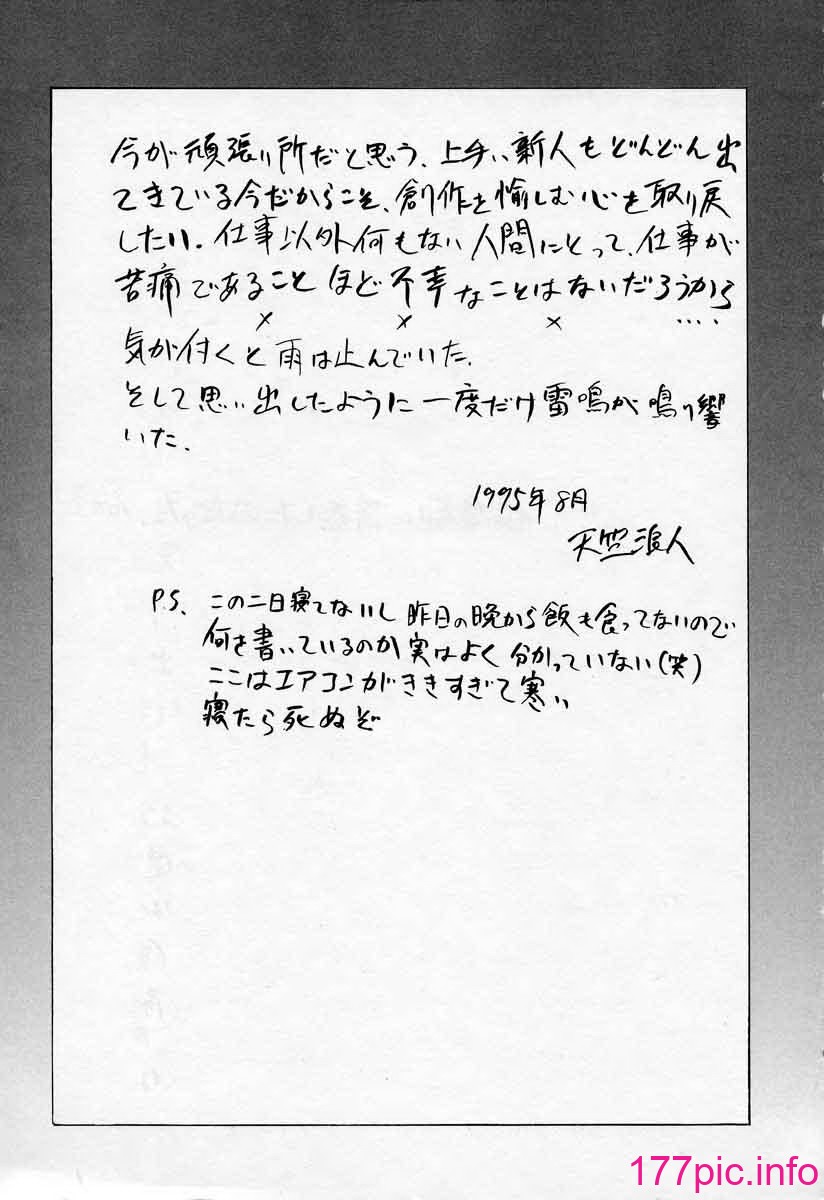 今が頑張り所だと思う、上手い新人もどんどん出
てきている今だからこそ、創作を愉しむ心を取り戻
したい。仕事以外何もない人間にとって、仕事が
苦痛であることほど不幸なことはないだろうから
× × × ‥‥
気が付くと雨は止んでいた。
そして思い出したように一度だけ雷鳴が鳴り響
いた。
1995年8月
天竺浪人
P.S、この二日寝てないし昨日の晩から飯も食ってないので
何を書いているのか実はよく分かっていない(笑)
ここはエアコンがききすぎて寒い
寝たら死ぬぞ
177pic.info